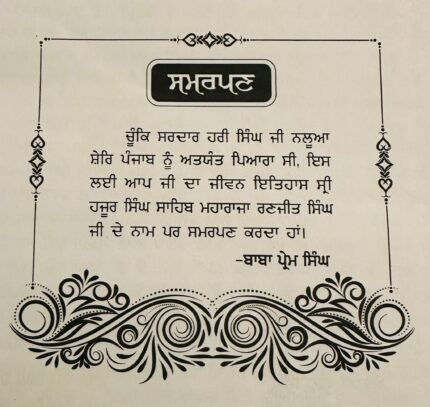 ਸਮਰਪਣ
ਚੂੰਕਿ ਸਰਦਾਰ ਹਰੀ ਸਿੰਘ ਜੀ ਨਲੂਆ
ਸ਼ੇਰਿ ਪੰਜਾਬ ਨੂੰ ਅਤਯੰਤ ਪਿਆਰਾ ਸੀ, ਇਸ
ਲਈ ਆਪ ਜੀ ਦਾ ਜੀਵਨ ਇਤਿਹਾਸ ਸ੍ਰੀ
ਹਜ਼ੂਰ ਸਿੰਘ ਸਾਹਿਬ ਮਹਾਰਾਜਾ ਰਣਜੀਤ ਸਿੰਘ
ਜੀ ਦੇ ਨਾਮ ਪਰ ਸਮਰਪਣ ਕਰਦਾ ਹਾਂ।
-ਬਾਬਾ ਪ੍ਰੇਮ ਸਿੰਘ